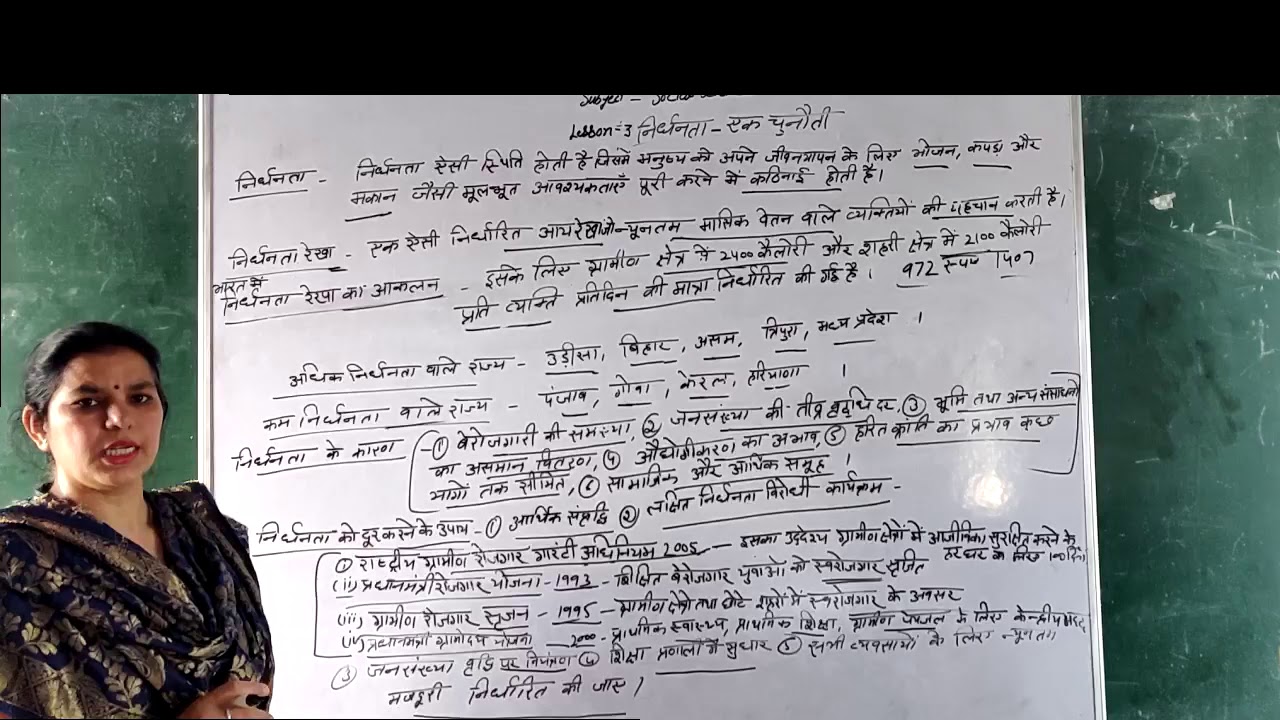 Subject - Social
Lesson:-3 निर्धनता - एक चुनौती
निर्धनता - निर्धनता ऐसी स्थिति होती है जिसमें मनुष्य को अपने जीवनयापन के लिए भोजन, कपड़ा और
मकान जैसी मूलभूत आवश्यकताएँ पूरी करने में कठिनाई होती है।
निर्धनता रेखा - एक ऐसी निर्धारित आय रेखा जो न्यूनतम मासिक वेतन वाले व्यक्तियों की पहचान करती है।
भारत में
निर्धनता रेखा का आकलन - इसके लिए ग्रामीण क्षेत्र में 2400 कैलोरी और शहरी क्षेत्र में 2100 कैलोरी
प्रति व्यक्ति प्रतिदिन की मात्रा निर्धारित की गई है। 972 रुपए 1407
अधिक निर्धनता वाले राज्य - उड़ीसा, बिहार, असम, त्रिपुरा, मध्य प्रदेश ।
कम निर्धनता वाले राज्य - पंजाब, गोवा, केरल, हरियाणा ।
निर्धनता के कारण - ① बेरोजगारी की समस्या, ② जनसंख्या की तीव्र वृद्धि दर, ③ भूमि तथा अन्य संसाधनो
का असमान वितरण, ④ औद्योगीकरण का अभाव, ⑤ हरित क्रांति का प्रभाव कुछ
भागों तक सीमित, ⑥ सामाजिक और आर्थिक समूह ।
निर्धनता को दूर करने के उपाय - ① आर्थिक संवृद्धि ② लक्षित निर्धनता विरोधी कार्यक्रम -
(i) राष्ट्रीय ग्रामीण रोजगार गारंटी अधिनियम 2005 - इसका उद्देश्य ग्रामीण क्षेत्रों में आजीविका सुरक्षित करने के
हर घर के लिए 100 दिन
(ii) प्रधानमंत्री रोजगार योजना - 1993 - शिक्षित बेरोजगार युवाओं को स्वरोजगार सृजित
(iii) ग्रामीण रोजगार सृजन - 1995 - ग्रामीण क्षेत्रों तथा छोटे शहरों में स्वरोजगार के अवसर
(iv) प्रधानमंत्री ग्रामोदय योजना 2000 - प्राथमिक स्वास्थ्य, प्राथमिक शिक्षा, ग्रामीण पेयजल के लिए केन्द्रीय मदद
③ जनसंख्या वृद्धि पर नियंत्रण ④ शिक्षा प्रणाली में सुधार ⑤ सभी व्यवसायों के लिए न्यूनतम
मजदूरी निर्धारित की जाए।